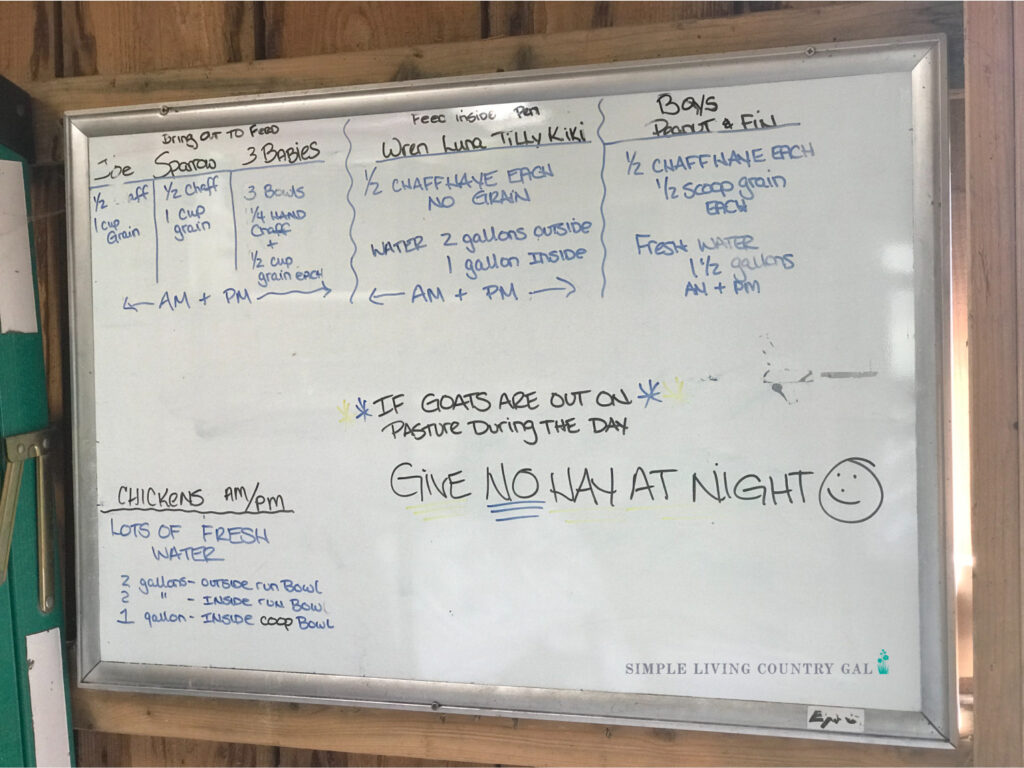 Bring Out To Feed
Sparrow 3 Babies
1/2 aff
1 cup
Grain
1/2 Chaff
1 cup
grain
3 Bowls
1/4 HAND
Chaff
+
1/2 cup
grain EACH
← AM + PM →
Feed Inside Pen
Wren Luna Tilly Kiki
1/2 CHAFFHAYE EACH
NO GRAIN
WATER 2 gallons OUTSIDE
1 gallon INSIDE
← AM + PM →
Boys
Peanut & Fin
1/2 CHAFFHAYE EACH
1/2 scoop grain
EACH
FRESH WATER
1 1/2 gallons
AM + PM
** IF GOATS ARE OUT ON **
PASTURE During THE DAY
GIVE NO HAY AT NIGHT
CHICKENS AM/PM
LOTS OF FRESH
WATER
2 gallons - OUTSIDE run Bowl
2 " - INSIDE run Bowl
1 gallon - INSIDE COOP Bowl
SIMPLE LIVING COUNTRY GAL